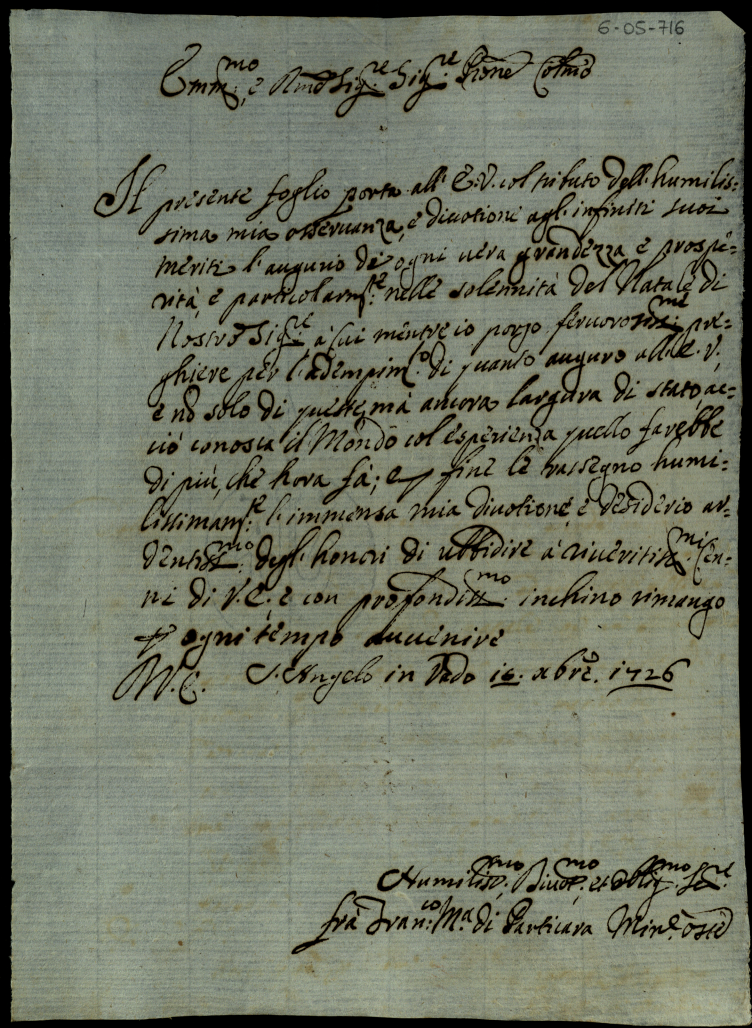 6-05-716
Emm.mo, e Rmo Sig.re Sig.re Prone Colmo
Il presente foglio porta all' E.V. col tributo dell' humilis-
sima mia osservanza, e divotione agl' infiniti suoi
meriti l'augurio di ogni vera grandezza e prospe-
rità, e particolarm.te nelle solennità del Natale di
Nostro Sig.re à cui mentre io porgo fervorosiss.me pre-
ghiere per l'adempim.to di quanto auguro all' E.V.,
e nō solo di queste, mà ancora largura di stato, ac-
ciò conosca il Mondo col esperienza quello farebbe
di più, che hora fà; e p fine le rassegno humi-
lissimam.te l'immensa mia divotione, e desiderio ar-
dentiss.mo degl' honori di ubbidire à riveritiss.mi Cen-
ni di V.E. e con profondiss.mo inchino rimango
p ogni tempo avvenire
V.E. S. Angelo in Vado 16. Xbrē. 1726
Humiliss.mo Divot.mo et Oblig.mo Se.re
frà Fran.co M.a di Particara Min.e Osse